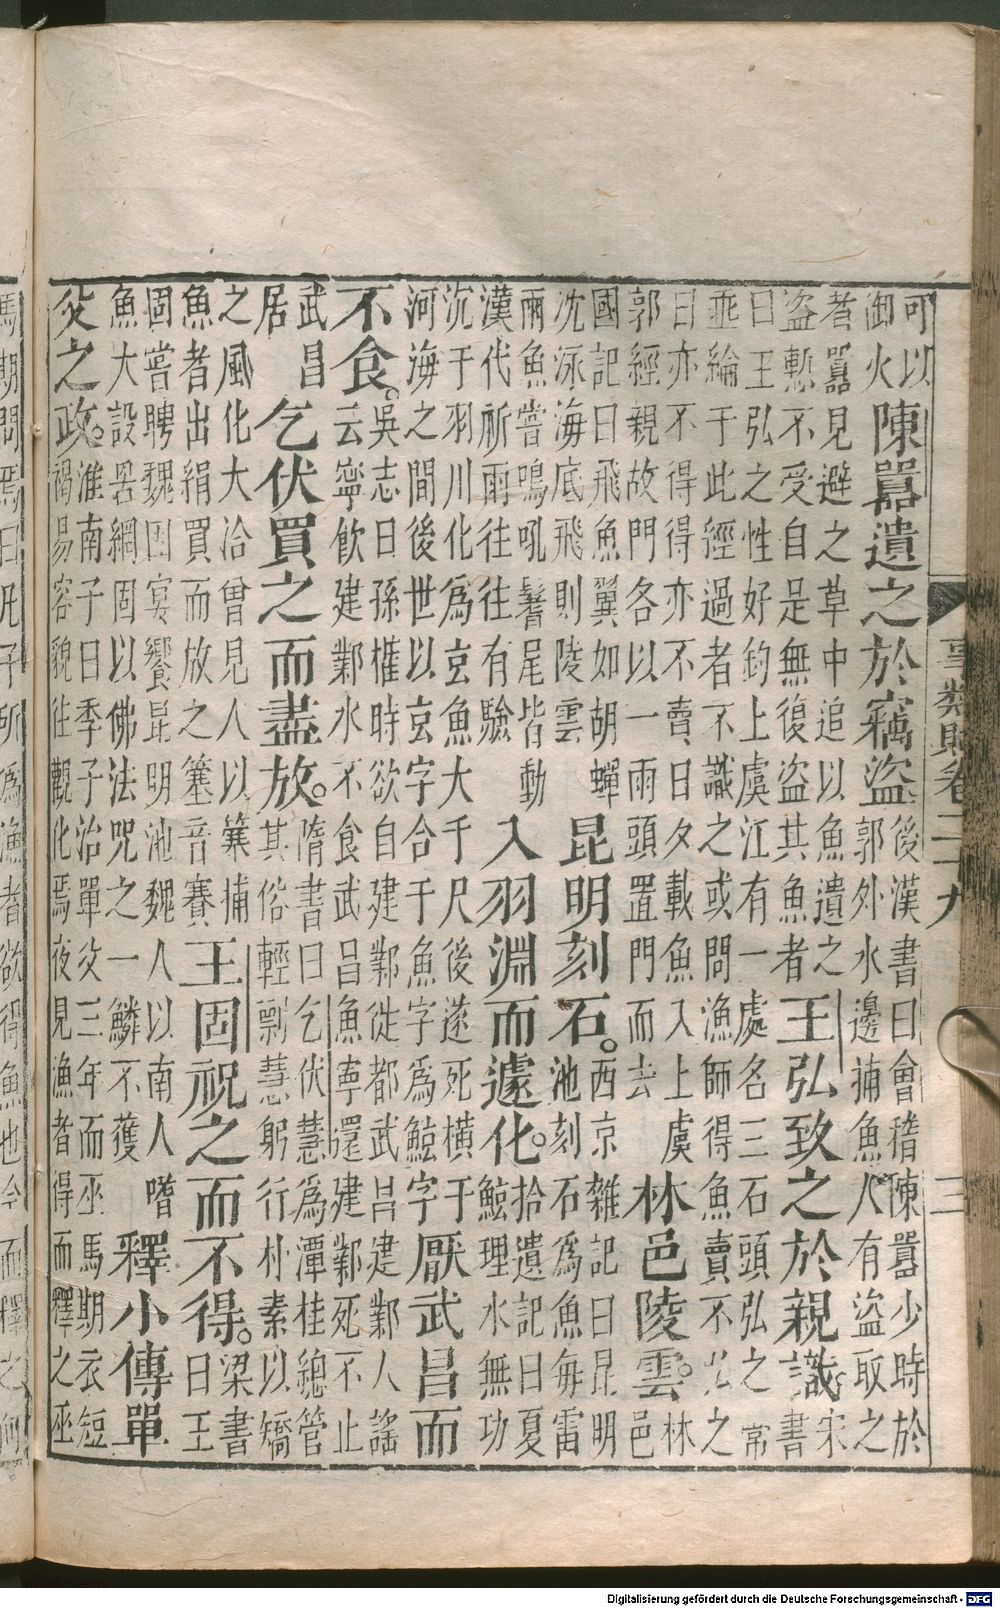 事類賦卷二十九　二
可以
御火
陳囂遺之於竊盜
後漢書曰會稽陳囂少時於
郭外水邊捕魚人有盜取之
者囂見避之草中追以魚遺之
盜慙不受自是無復盜其魚者
王弘致之於親識。
宋
書
曰王弘之性好釣上虞江有一處名三石頭弘之常
垂綸于此經過者不識之或問漁師得魚賣不弘之
曰亦不得得亦不賣日夕載魚入上虞
郭經親故門各以一兩頭置門而去
林邑陵雲。
林
邑
國記曰飛魚翼如胡蟬
沈泳海底飛則陵雲
昆明刻石。
西京雜記曰昆明
池刻石為魚每雷
雨魚嘗鳴吼鬐尾皆動
漢代祈雨往往有驗
入羽淵而遽化。
拾遺記曰夏
鯨理水無功
沉于羽川化為玄魚大千尺後遂死橫于
河海之間後世以玄字合于魚字為鯨字
厭武昌而
不食。
吳志曰孫權時欲自建鄴徙都武昌建鄴人謠
云寧飲建鄴水不食武昌魚寧還建鄴死不止
武昌
居
乞伏買之而盡放。
隋書曰乞伏慧為潭桂總管
其俗輕剽慧躬行朴素以矯
之風化大洽曾見人以簺捕
魚者出絹買而放之簺音賽
王固祝之而不得。
梁書
曰王
固嘗聘魏因宴饗昆明池魏人以南人嗜
魚大設罟網固以佛法咒之一鱗不獲
釋小傳單
父之政。
淮南子曰季子治單父三年而巫馬期衣短
褐易容貌往觀化焉夜見漁者得而釋之巫
馬期問焉曰凡子所為漁者欲得魚也今而釋之何
Digitalisierung gefördert durch die Deutsche Forschungsgemeinschaft - DFG